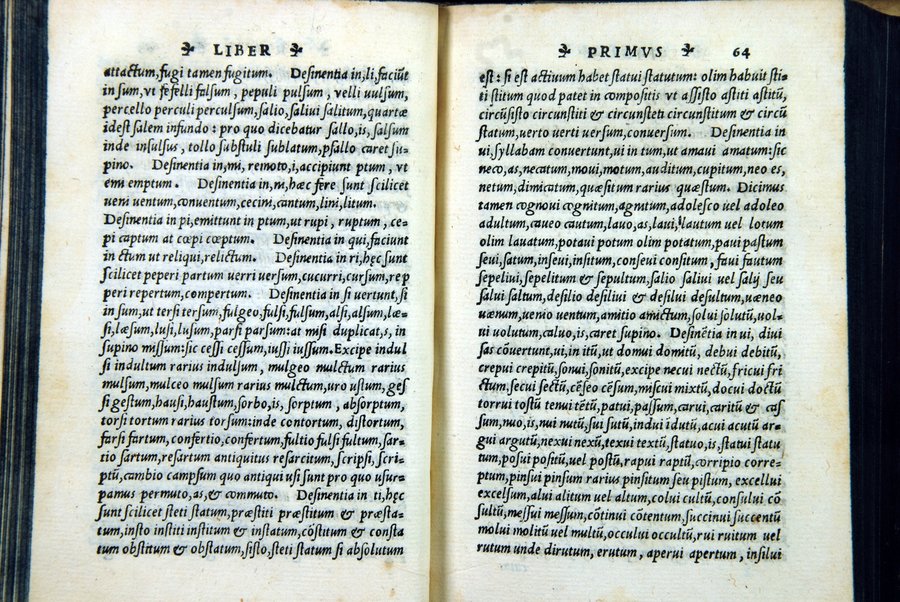 LIBER
attactum, fugi tamen fugitum. Desinentia in, li, faciũt
in sum, vt fefelli falsum, pepuli pulsum, velli uulsum,
percello perculi perculsum, salio, saliui salitum, quartæ
idest salem infundo : pro quo dicebatur sallo, is, salsum
inde insulsus, tollo substuli sublatum, psallo caret su-
pino. Desinentia in, mi, remoto, i, accipiunt ptum, vt
emi emptum. Desinentia in, ni, hæc fere sunt scilicet
ueni uentum, conuentum, cecini, cantum, lini, litum.
Desinentia in pi, emittunt in ptum, ut rupi, ruptum, ce-
pi captum at cœpi cœptum. Desinentia in qui, faciunt
in ctum ut reliqui, relictum. Desinentia in ri, hęc sunt
scilicet peperi partum uerri uersum, cucurri, cursum, rep
peri repertum, compertum. Desinentia in si uertunt, si
in sum, ut tersi tersum, fulgeo, fulsi, fulsum, alsi, alsum, læ-
si, læsum, lusi, lusum, parsi parsum: at misi duplicat, s, in
supino missum: sic cessi cessum, iussi iussum. Excipe indul
si indultum rarius indulsum, mulgeo mulctum rarius
mulsum, mulceo mulsum rarius mulctum, uro ustum, ges
si gestum, hausi, haustum, sorbo, is, sorptum, absorptum,
torsi tortum rarius torsum: inde contortum, distortum,
farsi fartum, confertio, confertum, fultio fulsi fultum, sar-
tio sartum, resartum antiquitus resarcitum, scripsi, scri-
ptũ, cambio campsum quo antiqui usi sunt pro quo usur-
pamus permuto, as, & commuto. Desinentia in ti, hęc
sunt scilicet steti statum, præstiti præstitum & præsta-
tum, insto institi institum & instatum, cõstitum & consta
tum obstitum & obstatum, sisto, steti statum si absolutum
PRIMVS 64
est : si est actiuum habet statui statutum: olim habuit sti-
ti stitum quod patet in compositis vt assisto astiti astitũ,
circũsisto circunstiti & circunsteti circũstitum & circũ
statum, uerto uerti uersum, conuersum. Desinentia in
ui, syllabam conuertunt, ui in tum, ut amaui amatum: sic
neco, as, necatum, moui, motum, auditum, cupitum, neo es,
netum, dimicatum, quæsitum rarius quæstum. Dicimus
tamen cognoui cognitum, agnatum, adolesco uel adoleo
adultum, caueo cautum, lauo, as, laui, lautum uel lotum
olim lauatum, potaui potum olim potatum, paui pastum
seui, satum, inseui, insitum, conseui consitum, faui fautum
sepeliui, sepelitum & sepultum, salio saliui uel salij seu
salui saltum, desilio desiliui & desilui desultum, uæneo
uænum, uenio uentum, amitio amictum, solui solutũ, uol-
ui uolutum, caluo, is, caret supino. Desinẽtia in ui, diui
sas cõuertunt, ui, in itũ, ut domui domitũ, debui debitũ,
crepui crepitũ, sonui, sonitũ, excipe necui nectũ, fricui fri
ctum, secui sectũ, cẽseo cẽsum, miscui mixtũ, docui doctũ
torrui tostũ tenui tẽtũ, patui, passum, carui, caritũ & cas
sum, nuo, is, nui nutũ, sui sutũ, indui idutũ, acui acutũ ar-
gui argutũ, nexui nexũ, texui textũ, statuo, is, statui statu
tum, posui positũ, uel postũ, rapui raptũ, corripio corre-
ptum, pinsui pinsum rarius pinsitum seu pistum, excellui
excelsum, alui alitum uel altum, colui cultũ, consului cõ
sultũ, messui messum, cõtinui cõtentum, succinui succentũ
molui molitũ uel multũ, occului occultũ, rui ruitum uel
rutum unde dirutum, erutum, aperui apertum, insilui